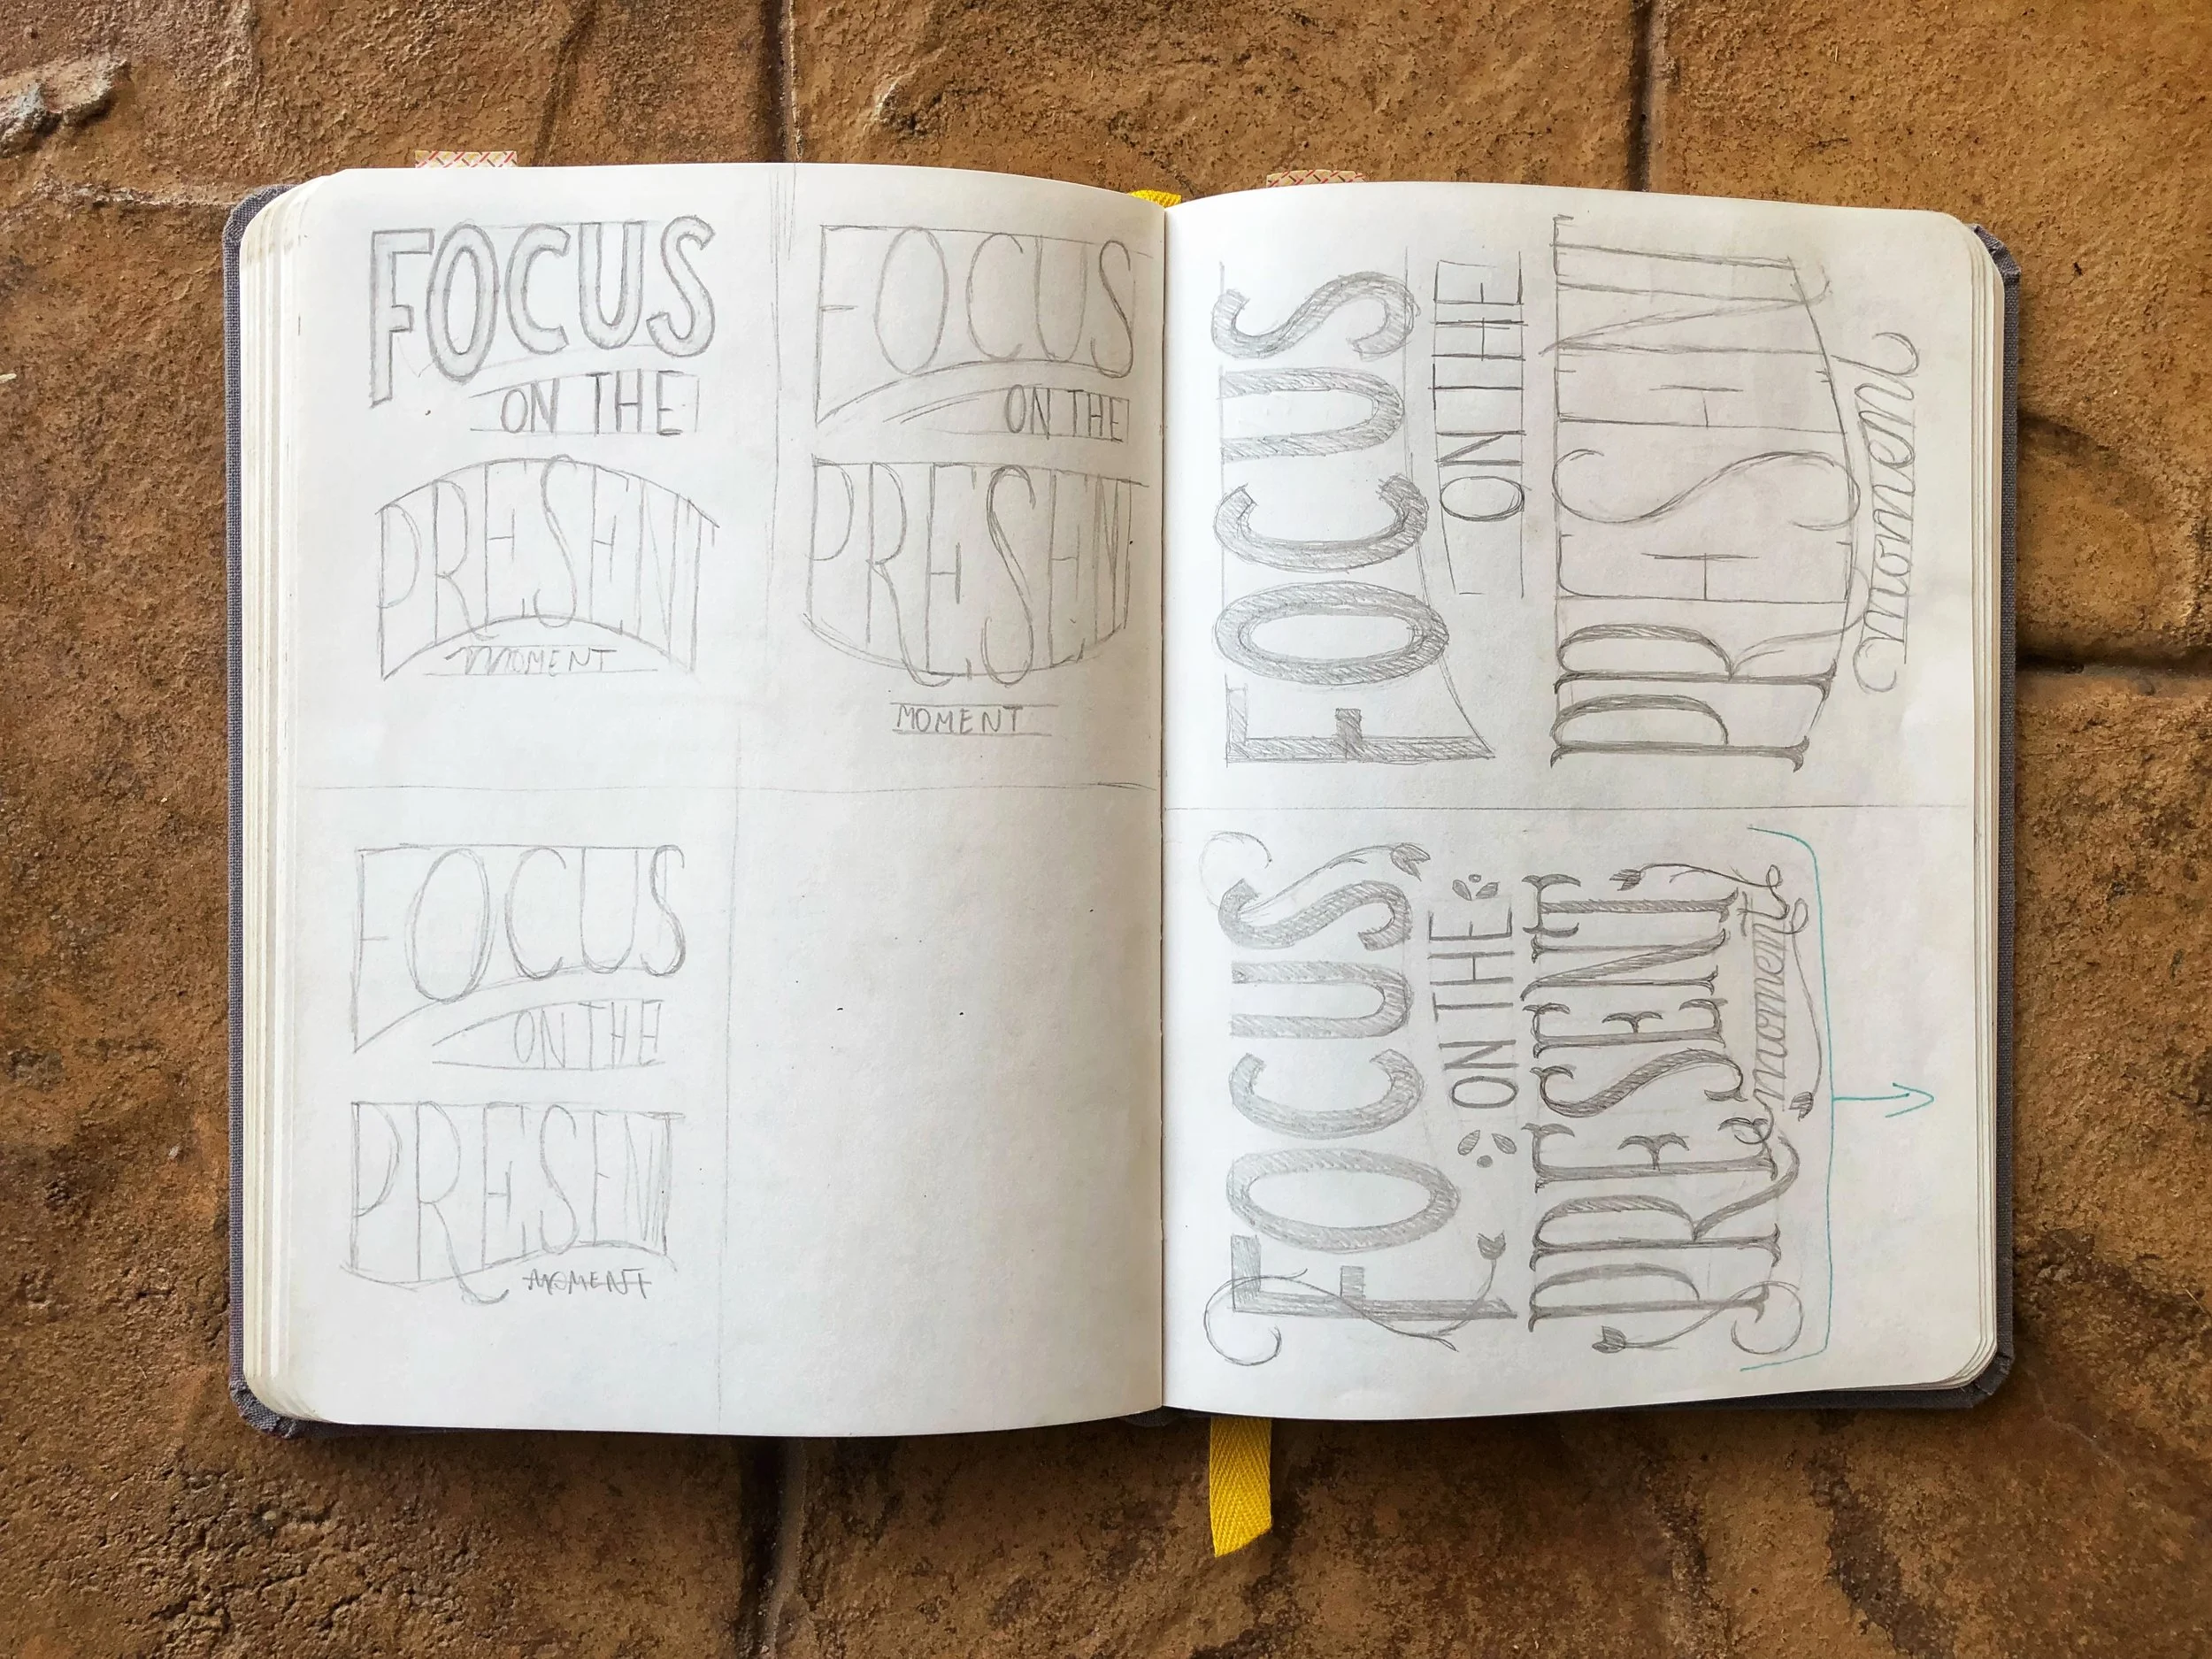 FOCUS
ON THE
PRESENT
MOMENT
FOCUS
ON THE
PRESENT
MOMENT
FOCUS
ON THE
PRESENT
MOMENT
FOCUS
ON THE
PRESENT
moment
FOCUS
ON THE
PRESENT
moment